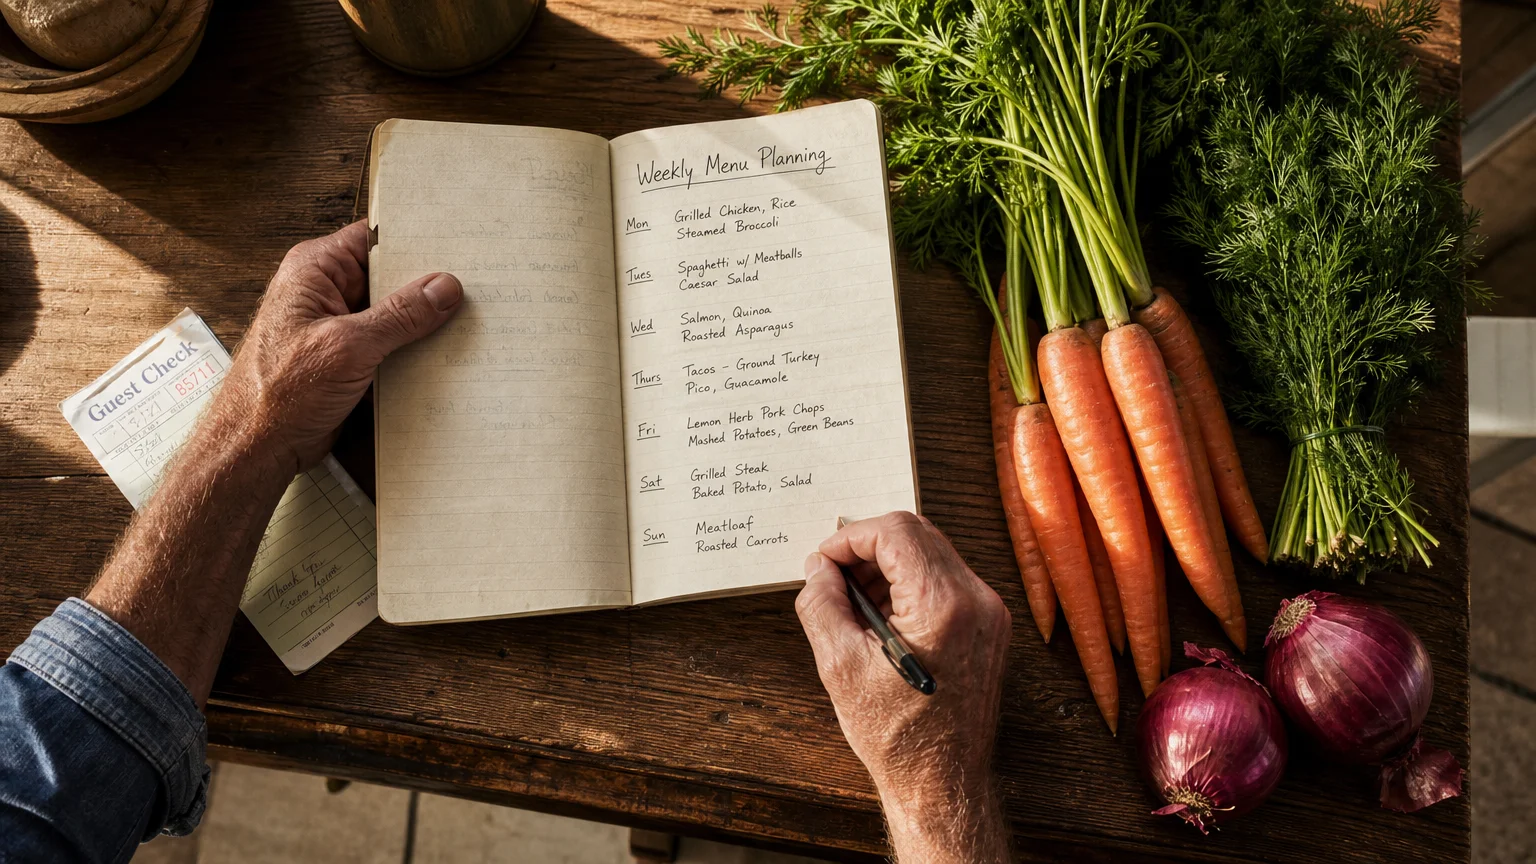 Weekly Menu Planning
Mon
Grilled Chicken, Rice
Steamed Broccoli
Tues
Spaghetti w/ Meatballs
Caesar Salad
Wed
Salmon, Quinoa
Roasted Asparagus
Thurs
Tacos – Ground Turkey
Pico, Guacamole
Fri
Lemon Herb Pork Chops
Mashed Potatoes, Green Beans
Sat
Grilled Steak
Baked Potato, Salad
Sun
Meatloaf
Roasted Carrots
Guest Check
85711
Thank